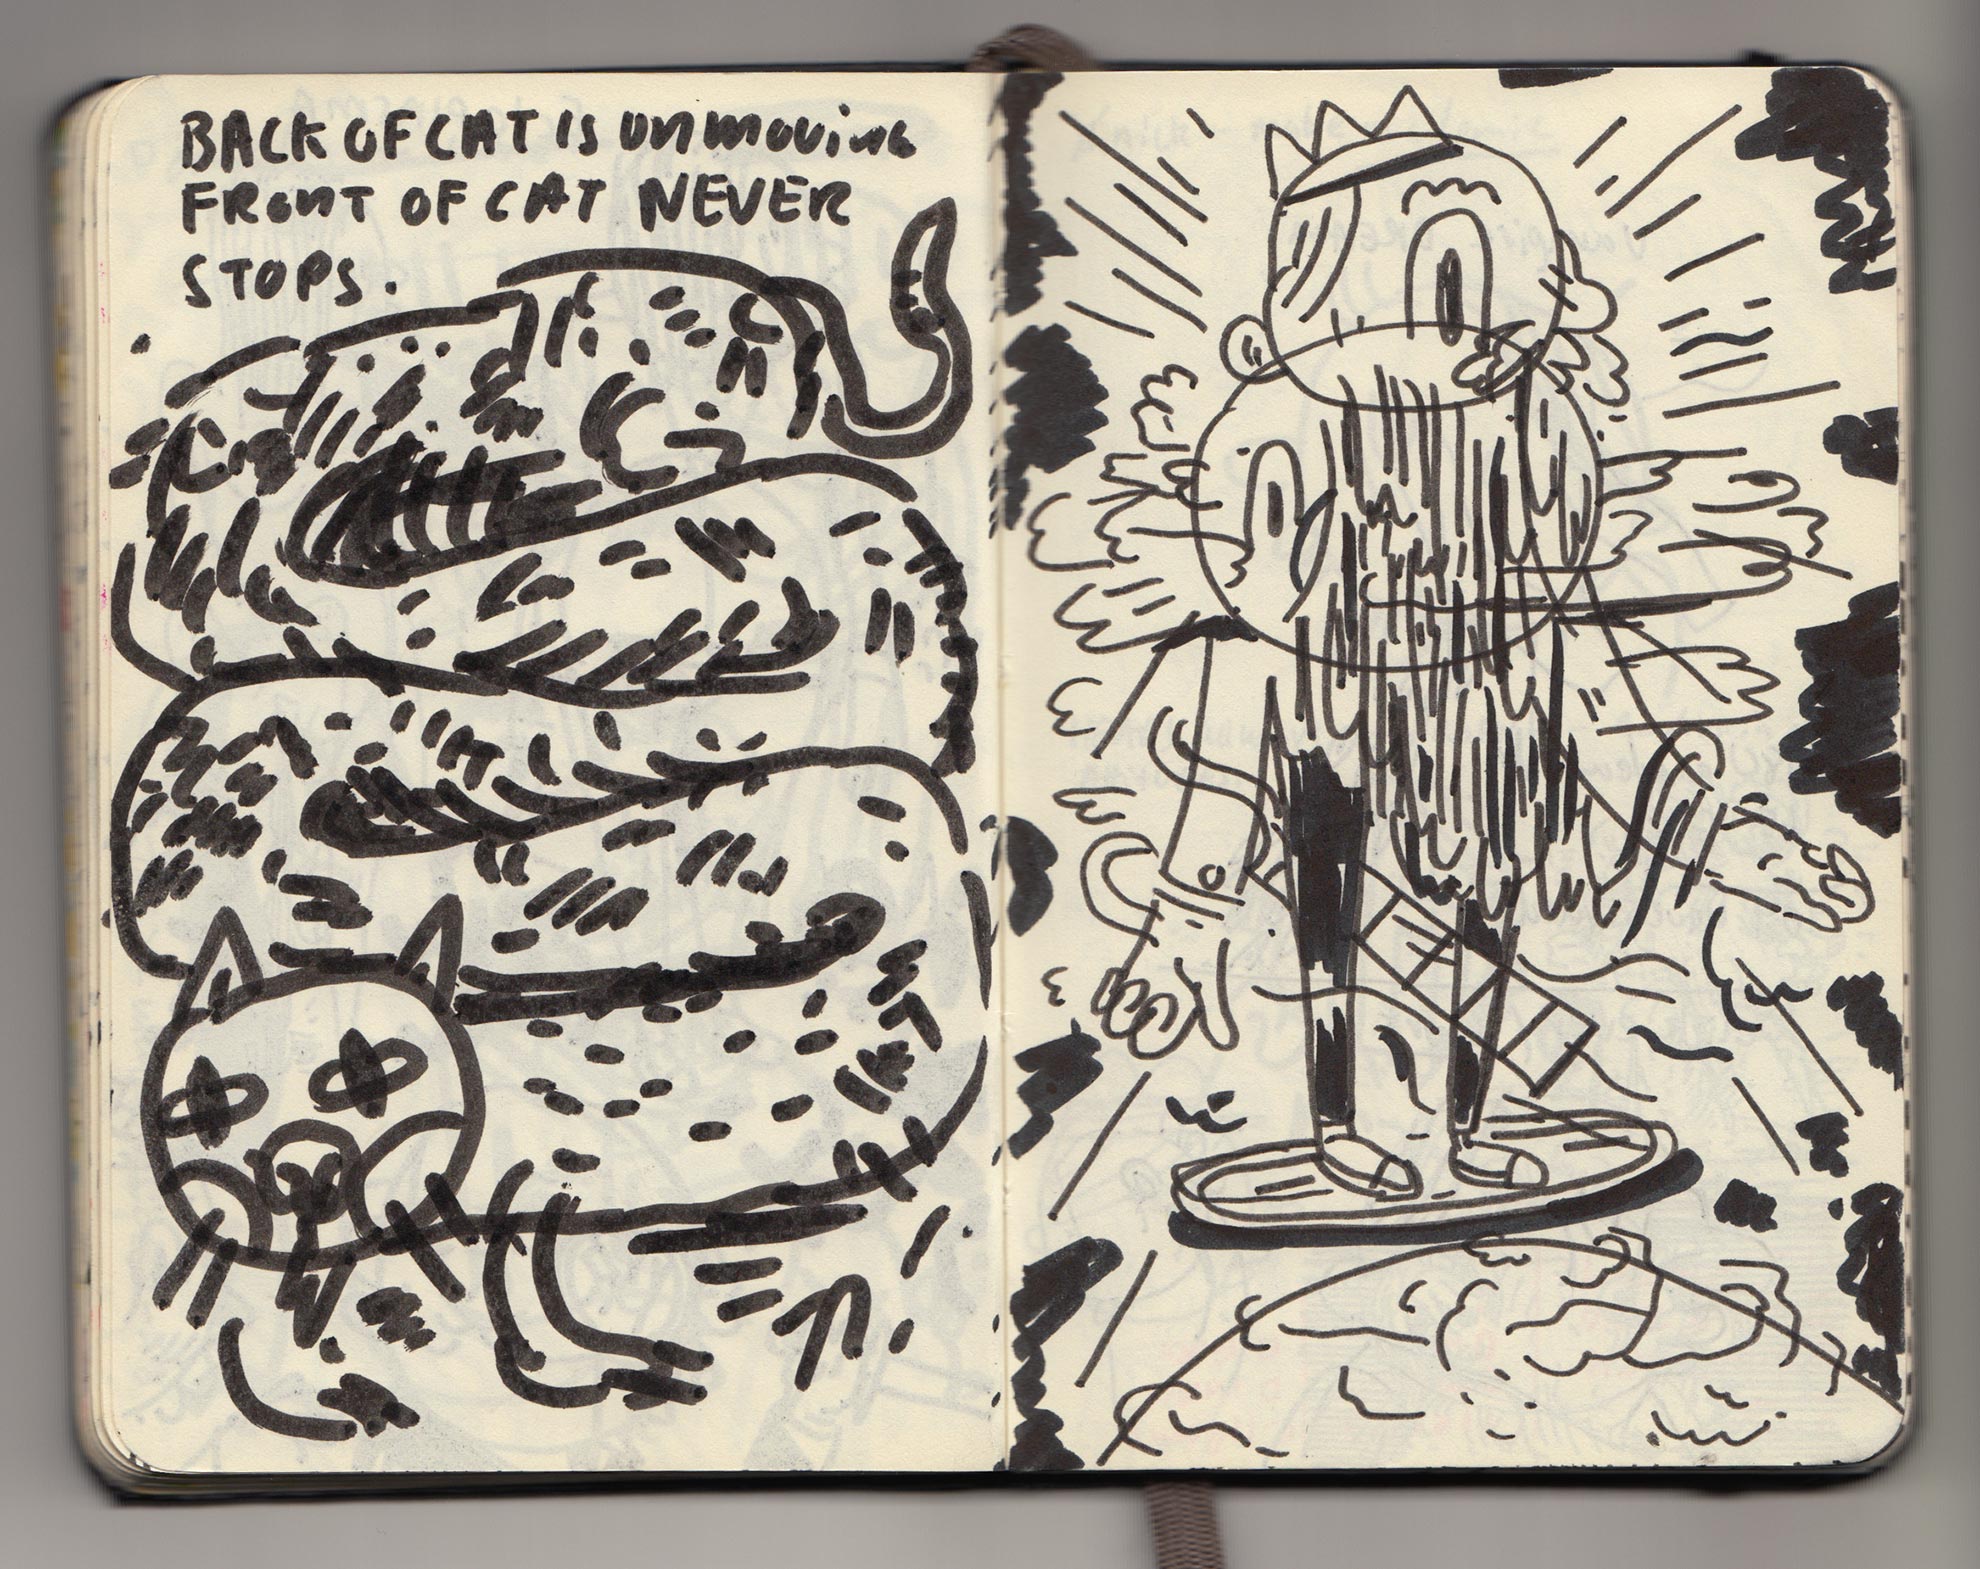 BACK OF CAT IS UNMOVING
FRONT OF CAT NEVER
STOPS.